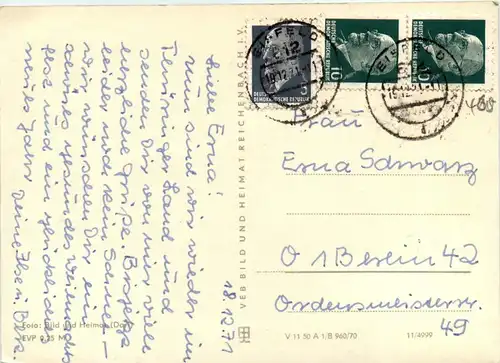 18.12.71
Liebe Erna!
Nun sind wir wieder im
Thüringer Land und
senden Dir von hier viele
herzliche Grüße. Bis jetzt
leider noch kein Schnee –
wir wünschen Dir ein
schönes gesundes Weihnachts-
fest und ein glückliches
neues Jahr Deine Ilse
Foto: Bild und Heimat
EVP 0,25 M
VEB BILD UND HEIMAT REICHENBACH I. V.
EISFELD
18.12.71
DEUTSCHE
DEMOKRATISCHE REPUBLIK
5
10
10
EISFELD
400
Frau
Erna Schwarz
01 Berlin 42
Ordensmeisterstr.
49
V 11 50 A 1/B 960/70
11/4999